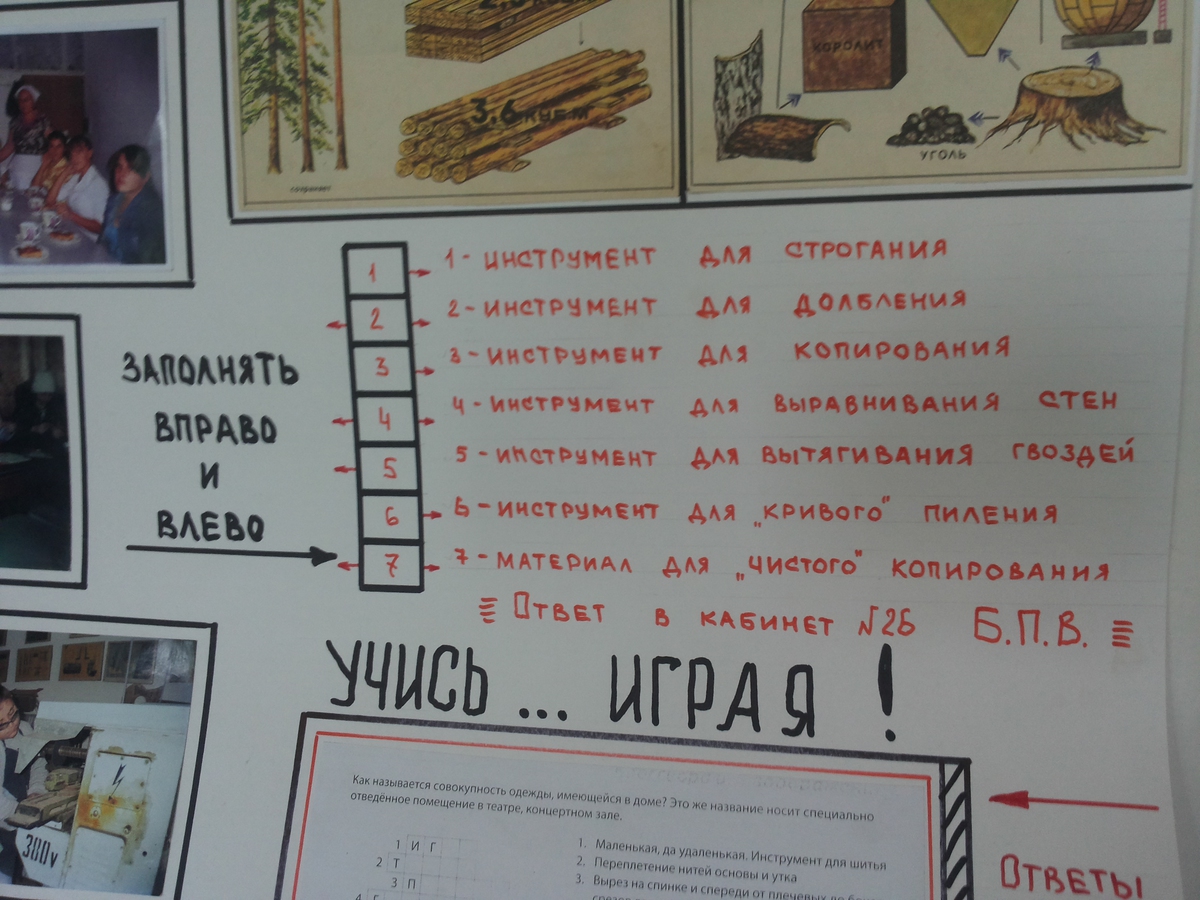 3,6 КУБ.М
КОРОЛИТ
УГОЛЬ
ЗАПОЛНЯТЬ
ВПРАВО
И
ВЛЕВО
1
2
3
4
5
6
7
1- ИНСТРУМЕНТ ДЛЯ СТРОГАНИЯ
2- ИНСТРУМЕНТ ДЛЯ ДОЛБЛЕНИЯ
3- ИНСТРУМЕНТ ДЛЯ КОПИРОВАНИЯ
4- ИНСТРУМЕНТ ДЛЯ ВЫРАВНИВАНИЯ СТЕН
5- ИНСТРУМЕНТ ДЛЯ ВЫТЯГИВАНИЯ ГВОЗДЕЙ
6- ИНСТРУМЕНТ ДЛЯ „КРИВОГО" ПИЛЕНИЯ
7- МАТЕРИАЛ ДЛЯ „ЧИСТОГО" КОПИРОВАНИЯ
ОТВЕТ В КАБИНЕТ №26 Б.П.В.
УЧИСЬ ... ИГРАЯ !
Как называется совокупность одежды, имеющейся в доме? Это же название носит специально
отведённое помещение в театре, концертном зале.
1 И Г
2 Т
3 П
1. Маленькая, да удаленькая. Инструмент для шитья
2. Переплетение нитей основы и утка
3. Вырез на спинке и спереди от плечевых до
ОТВЕТЫ
380v